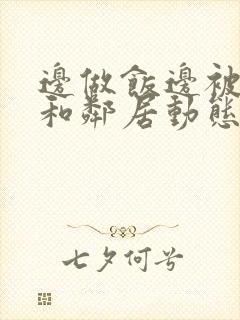 邊做飯邊被
和鄰居動態
七夕何兮